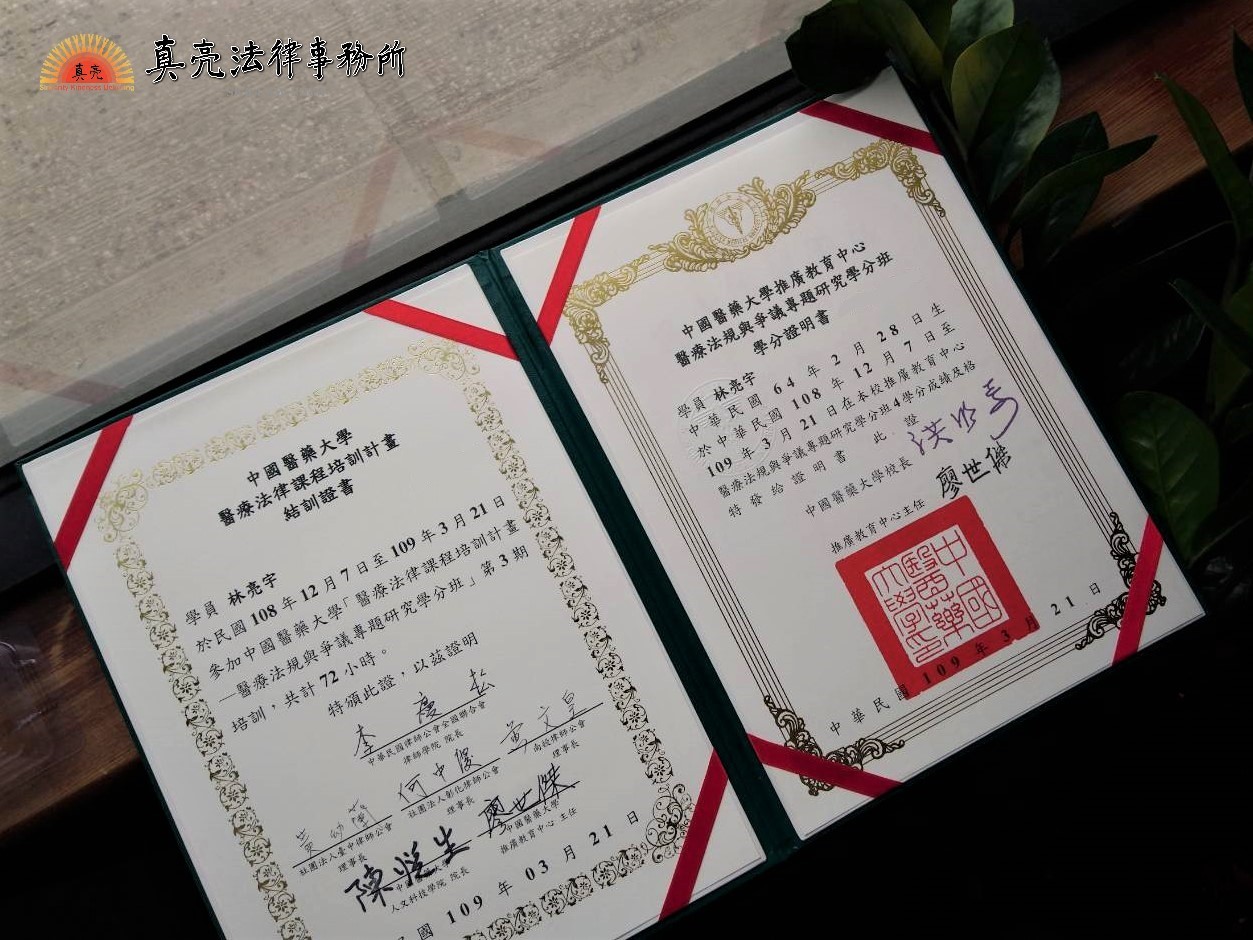 真亮
真亮法律事務所
中國醫藥大學
醫療法律課程培訓計畫
結訓證書
學員 林亮宇
於民國108年12月7日至109年3月21日
參加中國醫藥大學「醫療法律課程培訓計畫
—醫療法規與爭議專題研究學分班」第3期
培訓,共計72小時。
特頒此證,以茲證明
李慶松
中華民國律師公會全國聯合會
律師學院 院長
黃文皇
南投律師公會
理事長
何中俊
社團法人彰化律師公會
理事長
社團法人臺中律師公會
理事長
廖世傑
中國醫藥大學
推廣教育中心 主任
陳悅生
人文科技學院 院長
國 109 年 03 月 21 日
中國醫藥大學推廣教育中心
醫療法規與爭議專題研究學分班
學分證明書
學員 林亮宇
中華民國 64 年 2 月 28 日生
於中華民國 108 年 12 月 7 日至
109 年 3 月 21 日在本校推廣教育中心
醫療法規與爭議專題研究學分班4學分成績及格
特發給證明書 此 證
中國醫藥大學校長
推廣教育中心主任 廖世傑
中國醫藥大學印
中華民國 109 年 3 月 21 日